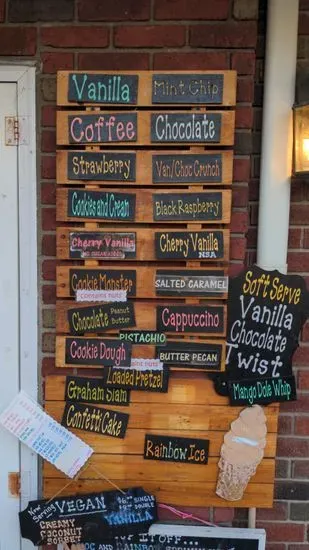 Vanilla
Mint Chip
Coffee
Chocolate
Strawberry
Van/Choc Crunch
Cookies and Cream
Black Raspberry
Cherry Vanilla
Cherry Vanilla
NSA
Cookie Monster
contains nuts
SALTED CARAMEL
Chocolate Peanut Butter
Cappuccino
PISTACHIO
Cookie Dough
BUTTER PECAN
Loaded Pretzel
Graham Slam
Confetti Cake
Rainbow Ice
Soft Serve
Vanilla
Chocolate
Twist
Mango Dole Whip
Now
Serving
VEGAN
SINGLE
DOUBLE
CREAMY
COCONUT
VANILLA